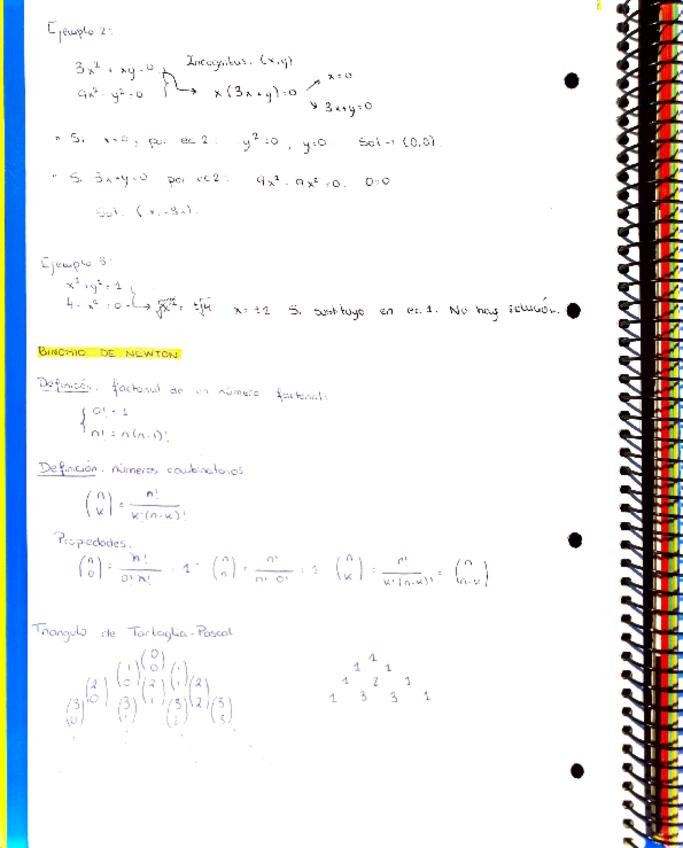 Ejemplo 2:
3x² + xy = 0 Incognitas. (x,y)
9x² - y² = 0 → x(3x+y)=0 x=0
3x+y=0
• Si x=0, por ec 2: y²=0, y=0 Sol → (0,0).
• Si 3x+y=0 por ec 2: 9x² - 9x² = 0. 0=0
Sol. (x,-3x).
Ejemplo 3:
x² + y² = 1
4 - x² = 0 → √x² = ±√4 x = ±2 Si sustituyo en ec. 1. No hay solución.
BINOMIO DE NEWTON
Definición. factorial de un número factorial:
0! = 1
n! = n(n-1)!
Definición. números combinatorios
(n k) = n! / k!(n-k)!
Propiedades.
(n 0) = n! / 0! n! = 1 · (n n) = n! / n! 0! = 1 (n k) = n! / k!(n-k)! = (n n-k)
Triangulo de Tartaglia-Pascal
(0 0) 1
(1 0) (1 1) 1 1
(2 0) (2 1) (2 2) 1 2 1
(3 0) (3 1) (3 2) (3 3) 1 3 3 1